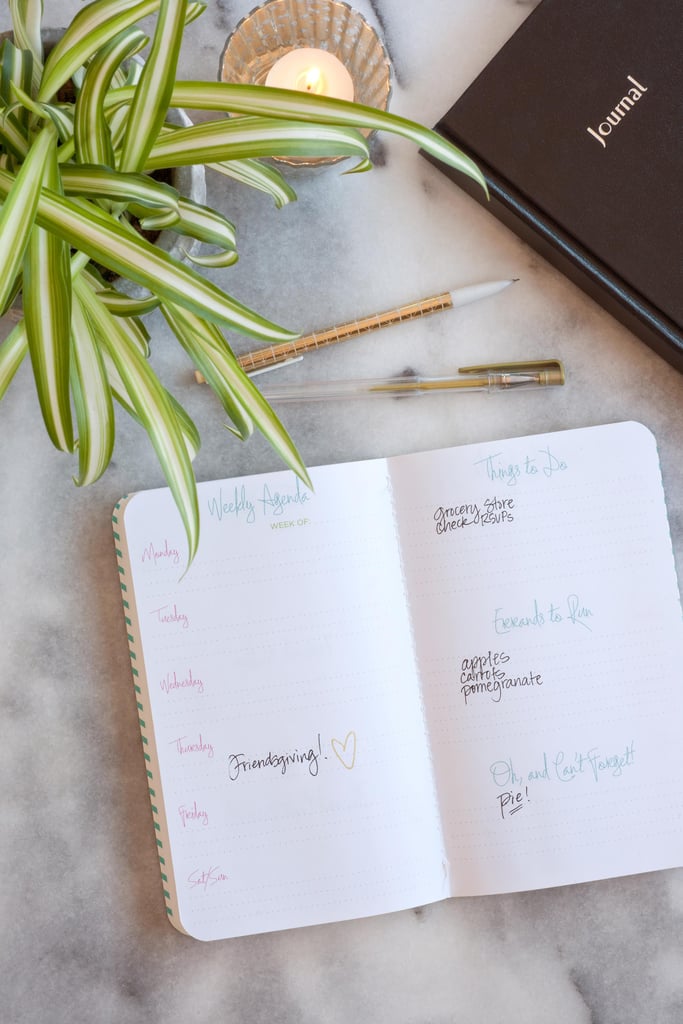 Journal
Weekly Agenda
WEEK OF:
Monday
Tuesday
Wednesday
Thursday
Friendsgiving!
Friday
Sat/Sun
Things to Do
grocery store
check RSVPs
Errands to Run
apples
carrots
pomegranate
Oh, and Can't Forget!
pie!